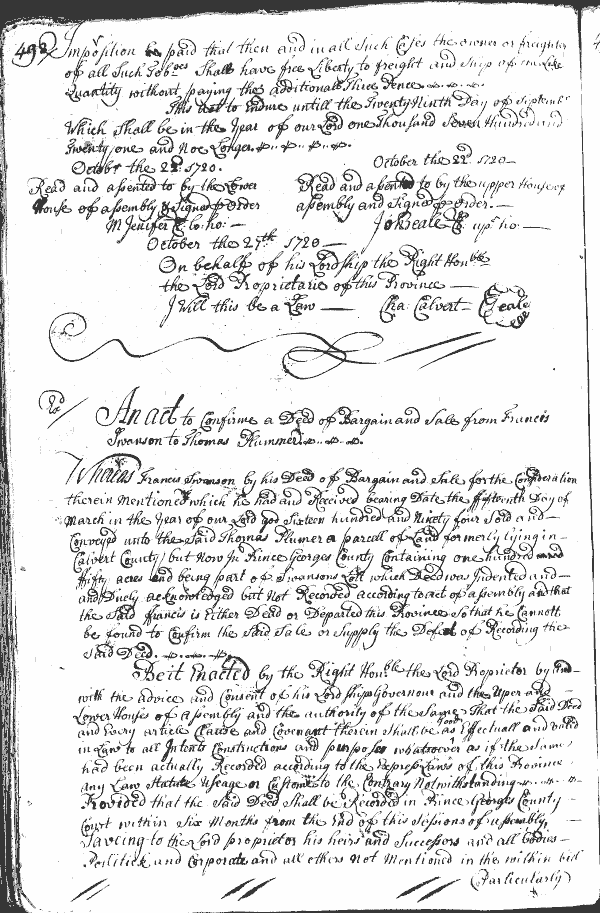 498
Imposition paid that then and in all Such Cases the owner or freighter
of all Such Tob:oes Shall have free Liberty to freight and Ship of the Like
Quantity without paying the additionall Three Pence
This Act to Endure untill the Twenty Ninth Day of Septembr
Which Shall be in the Year of our Lord one Thousand Seven Hundred and
Twenty one and Noe Longer
October the 22. 1720.
Read and assented to by the Lower
House of assembly & Signed p Order
M Jenifer Cl: lo: ho:
October the 22 1720
Read and assented to by the upper House of
assembly and Signed p order.
Jo Beale Cl: upr ho:
October the 27th 1720
On behalf of his Lordship the Right Honble
the Lord Proprietarie of this Province
I Will this be a Law
Cha: Calvert
Seale
An act to Confirme a Deed of Bargain and Sale from Francis
Swanson to Thomas Plummer
Whereas Francis Swanson by his Deed of Bargain and Sale for the Consideration
therein Mentioned which he had and Received bearing Date the ffifteenth Day of
March in the Year of our Lord god Sixteen hundred and Ninety four Sold and
Conveyed unto the Said Thomas Plumer a parcell of Land formerly lying in
Calvert County but Now In Prince Georges County Containing one hundred and
ffifty acres and being part of Swansons Lott which Deed was Indented and
and Duely acknowledged but Not Recorded according to act of assembly and that
the Said ffrancis is Either Dead or Departed this Province So that he Cannott
be found to Confirm the Said Sale or Supply the Defect of Recording the
Said Deed.
Be it Enacted by the Right Honble the Lord Proprietor by and
with the advice and Consent of his Lordships Governour and the Uper and
Lower Houses of assembly and the authority of the Same That the Said Deed
and Every article Clause and Covenant therein Shall be as good Effectuall and valid
in Law to all Intents Constructions and purposes whatsoever as if the Same
had been actually Recorded according to the Express Laws of this Province
any Law Statute Useage or Custome to the Contrary Notwithstanding
Provided that the Said Deed Shall be Recorded in Prince Georges County
Court within Six Months from the End of this Sessions of assembly
Saveing to the Lord proprietor his heirs and Successors and all bodies
Politick and Corporate and all others Not Mentioned in the within bill
(Particularly)